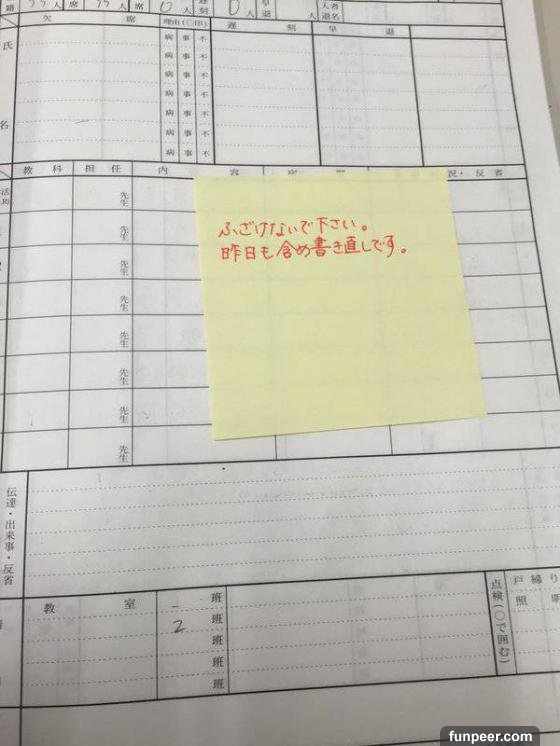 籍 人 席 人 席 0 人 遅刻 0 人 早退 人 入者 退名
欠 席 理由(〇印) 遅 刻 早 退
氏 病 事 不
病 事 不
病 事 不
病 事 不
名 病 事 不
病 事 不
病 事 不
教 科 担 任 内 容 況・反 省
先生
先生
先生
先生
先生
先生
先生
先生
ふざけないで下さい。
昨日も含め書き直しです。
伝達・出来事・反省
教 室 班
2 班
班
班
班
点検(〇で囲む)
戸 締 り
照 明
funpeer.com